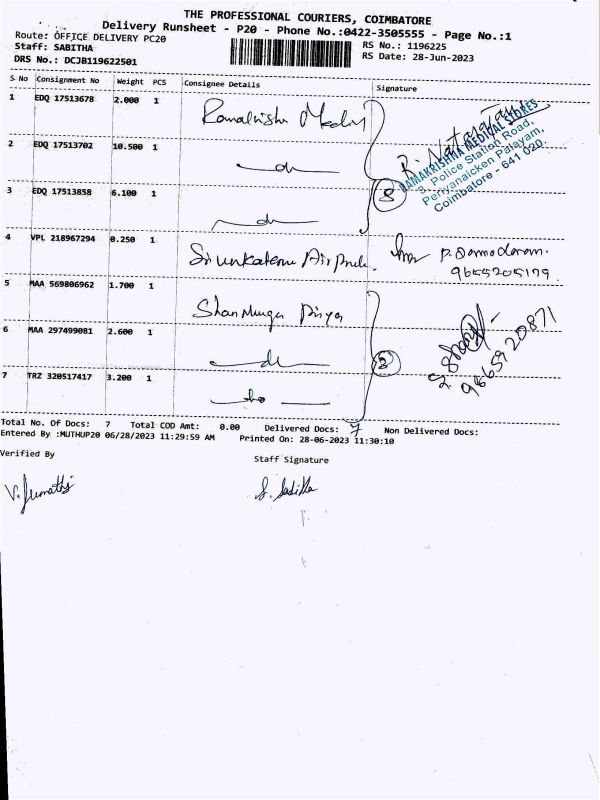 THE PROFESSIONAL COURIERS, COIMBATORE
Delivery Runsheet - P20 - Phone No.:0422-3505555 - Page No.:1
Route: OFFICE DELIVERY PC20
RS No.: 1196225
Staff: SABITHA
RS Date: 28-Jun-2023
DRS No.: DCJB119622501
S No Consignment No Weight PCS Consignee Details Signature
1 EDQ 17513678 2.000 1
R. Natarajan
RAMAKRISHNA MEDICAL STORES
3, Police Station Road,
Periyanaicken Palayam,
Coimbatore - 641 020.
2 EDQ 17513702 10.500 1 do
3 EDQ 17513858 6.100 1 do
3
4 VPL 218967294 0.250 1 P. Damodaram.
9655205179
5 MAA 569806962 1.700 1 Shanmuga Priya
6 MAA 297499081 2.600 1 do
2
9865920871
7 TRZ 320517417 3.200 1 do
Total No. Of Docs: 7 Total COD Amt: 0.00 Delivered Docs: 7 Non Delivered Docs:
Entered By :MUTHUP20 06/28/2023 11:29:59 AM Printed On: 28-06-2023 11:30:10
Verified By
Staff Signature
V. Sumathi
S. Sabitha